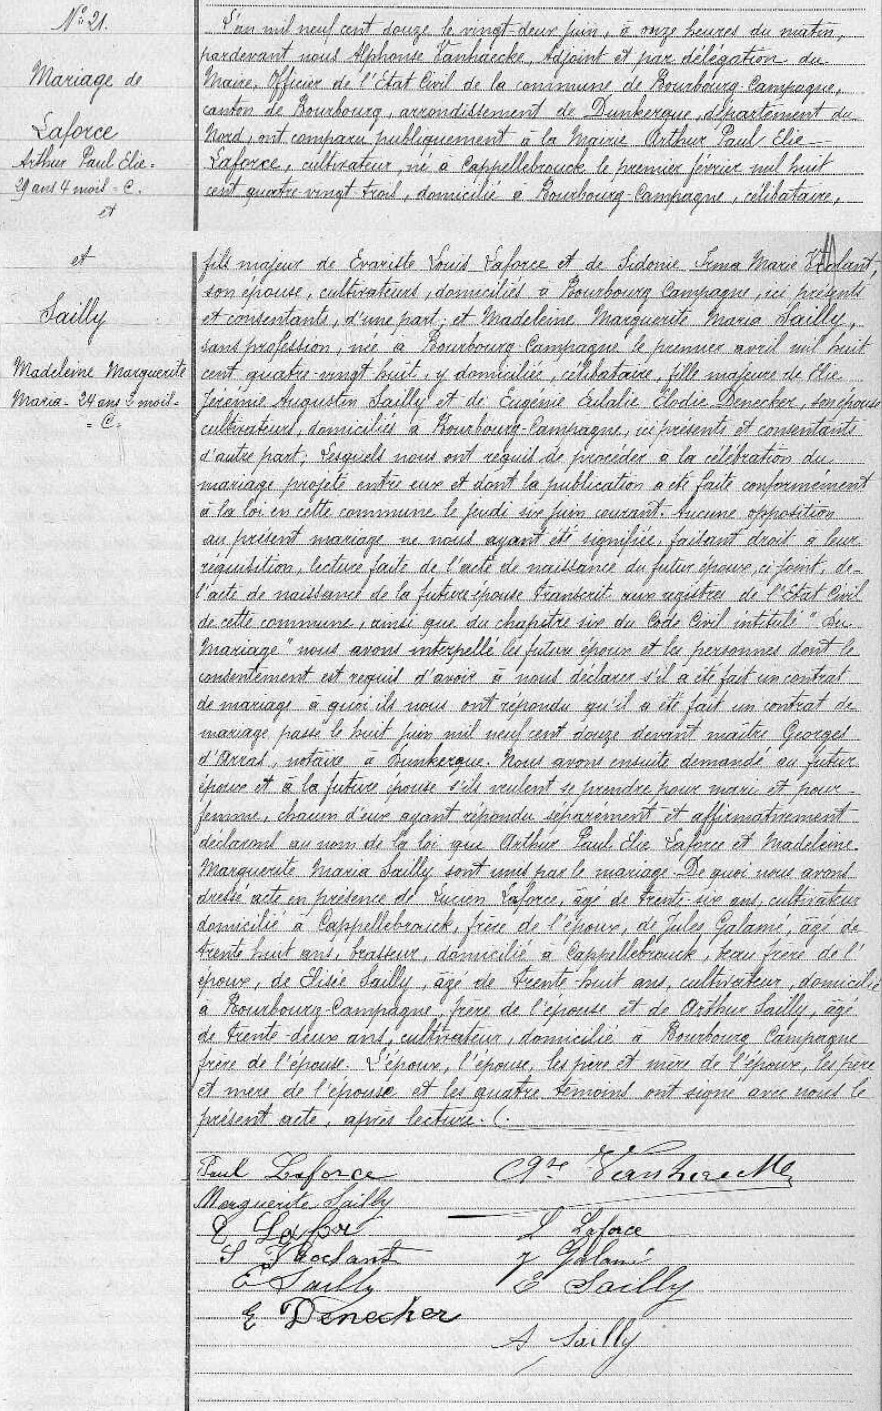 N° 21.
Mariage de
Laforce
Arthur Paul Elie -
29 ans 4 mois = C.
et
L'an mil neuf cent douze le vingt-deux juin, à onze heures du matin,
pardevant nous Alphonse Vanhaecke, Adjoint et par délégation du
Maire, Officier de l'Etat Civil de la commune de Bourbourg-Campagne,
canton de Bourbourg, arrondissement de Dunkerque, département du
Nord, ont comparu publiquement à la Mairie Arthur Paul Elie
Laforce, cultivateur, né à Cappellebrouck le premier février mil huit
cent quatre-vingt trois, domicilié à Bourbourg-Campagne, célibataire,
et
Sailly
Madeleine Marguerite
Maria - 24 ans 2 mois -
= C. -
fils majeur de Evariste Louis Laforce et de Sidonie Irma Marie
son épouse, cultivateurs, domiciliés à Bourbourg Campagne, ici présents
et consentants, d'une part; et Madeleine Marguerite Maria Sailly,
sans profession, née à Bourbourg-Campagne le premier avril mil huit
cent quatre-vingt huit, y domiciliée, célibataire, fille majeure de Elie
Jérémie Augustin Sailly et de Eugénie Eulalie Elodie Denecker, son épouse
cultivateurs, domiciliés à Bourbourg-Campagne, ici présents et consentants
d'autre part; Lesquels nous ont requis de procéder à la célébration du
mariage projeté entre eux et dont la publication a été faite conformément
à la loi en cette commune le jeudi six juin courant. Aucune opposition
au présent mariage ne nous ayant été signifiée, faisant droit à leur
réquisition, lecture faite de l'acte de naissance du futur époux, ci joint, de-
l'acte de naissance de la future épouse transcrit aux registres de l'Etat Civil
de cette commune, ainsi que du chapitre six du Code Civil intitulé "Du
Mariage" nous avons interpellé les futurs époux et les personnes dont le
consentement est requis d'avoir à nous déclarer s'il a été fait un contrat
de mariage à quoi ils nous ont répondu qu'il a été fait un contrat de
mariage passé le huit juin mil neuf cent douze devant maître Georges
d'Arras, notaire à Dunkerque. Nous avons ensuite demandé au futur
époux et à la future épouse s'ils veulent se prendre pour mari et pour-
femme, chacun d'eux ayant répondu séparément et affirmativement
déclarons au nom de la loi que Arthur Paul Elie Laforce et Madeleine
Marguerite Maria Sailly sont unis par le mariage. De quoi nous avons
dressé acte en présence de Lucien Laforce, âgé de trente-six ans, cultivateur
domicilié à Cappellebrouck, frère de l'époux, de Jules Galamé, âgé de
trente huit ans, brasseur, domicilié à Cappellebrouck, beau frère de l'
époux, de Elisée Sailly, âgé de trente-huit ans, cultivateur, domicilié
à Bourbourg-Campagne, frère de l'épouse et de Arthur Sailly, âgé
de trente-deux ans, cultivateur, domicilié à Bourbourg Campagne
frère de l'épouse. L'époux, l'épouse, les père et mère de l'époux, les père
et mère de l'épouse et les quatre témoins ont signé avec nous le
présent acte, après lecture.
Paul Laforce
Vanhaecke
Marguerite Sailly
L Laforce
J Galamé
E Sailly
E Sailly
E Denecker
A Sailly